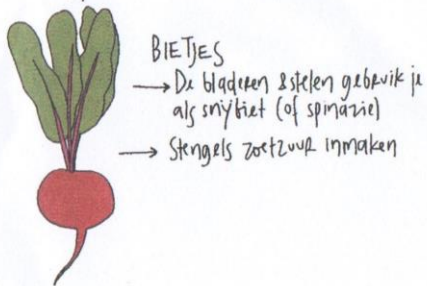 BIETJES
→ De bladeren & stelen gebruik je
als snijbiet (of spinazie)
→ Stengels zoetzuur inmaken